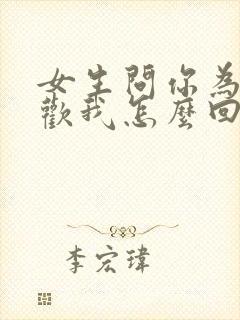 女生問你為
歡我怎麼回
李宏瑋